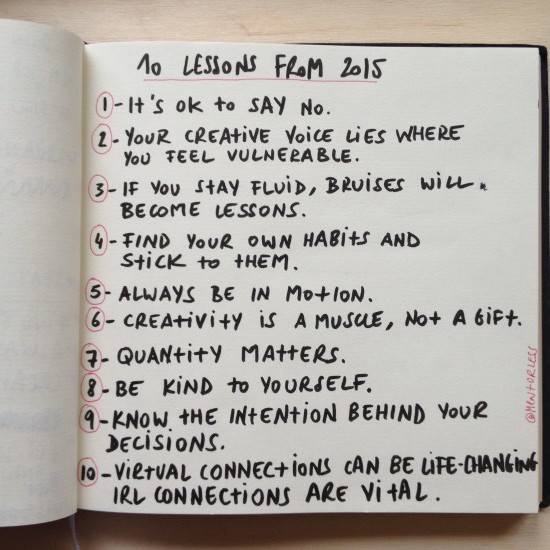 10 LESSONS FROM 2015
1 - It's ok to SAY NO.
2 - YOUR CREATIVE VOICE LIES WHERE
YOU FEEL VULNERABLE.
3 - IF YOU STAY FLUID, BRUISES WILL
BECOME LESSONS.
4 - FIND YOUR OWN HABITS AND
STICK to tHEM.
5 - ALWAYS BE IN MOtION.
6 - CREAtiVitY IS A MUSCLE, NOt A GIFt.
7 - QUANtitY MAttERS.
8 - BE KIND to YOURSELF.
9 - KNOW THE INtENtION BEHIND YOUR
DECISIONS.
10 - VIRTUAL CONNECTIONS CAN BE LIFE-CHANGING
IRL CONNECTIONS ARE VitAL.
@MENTORLESS